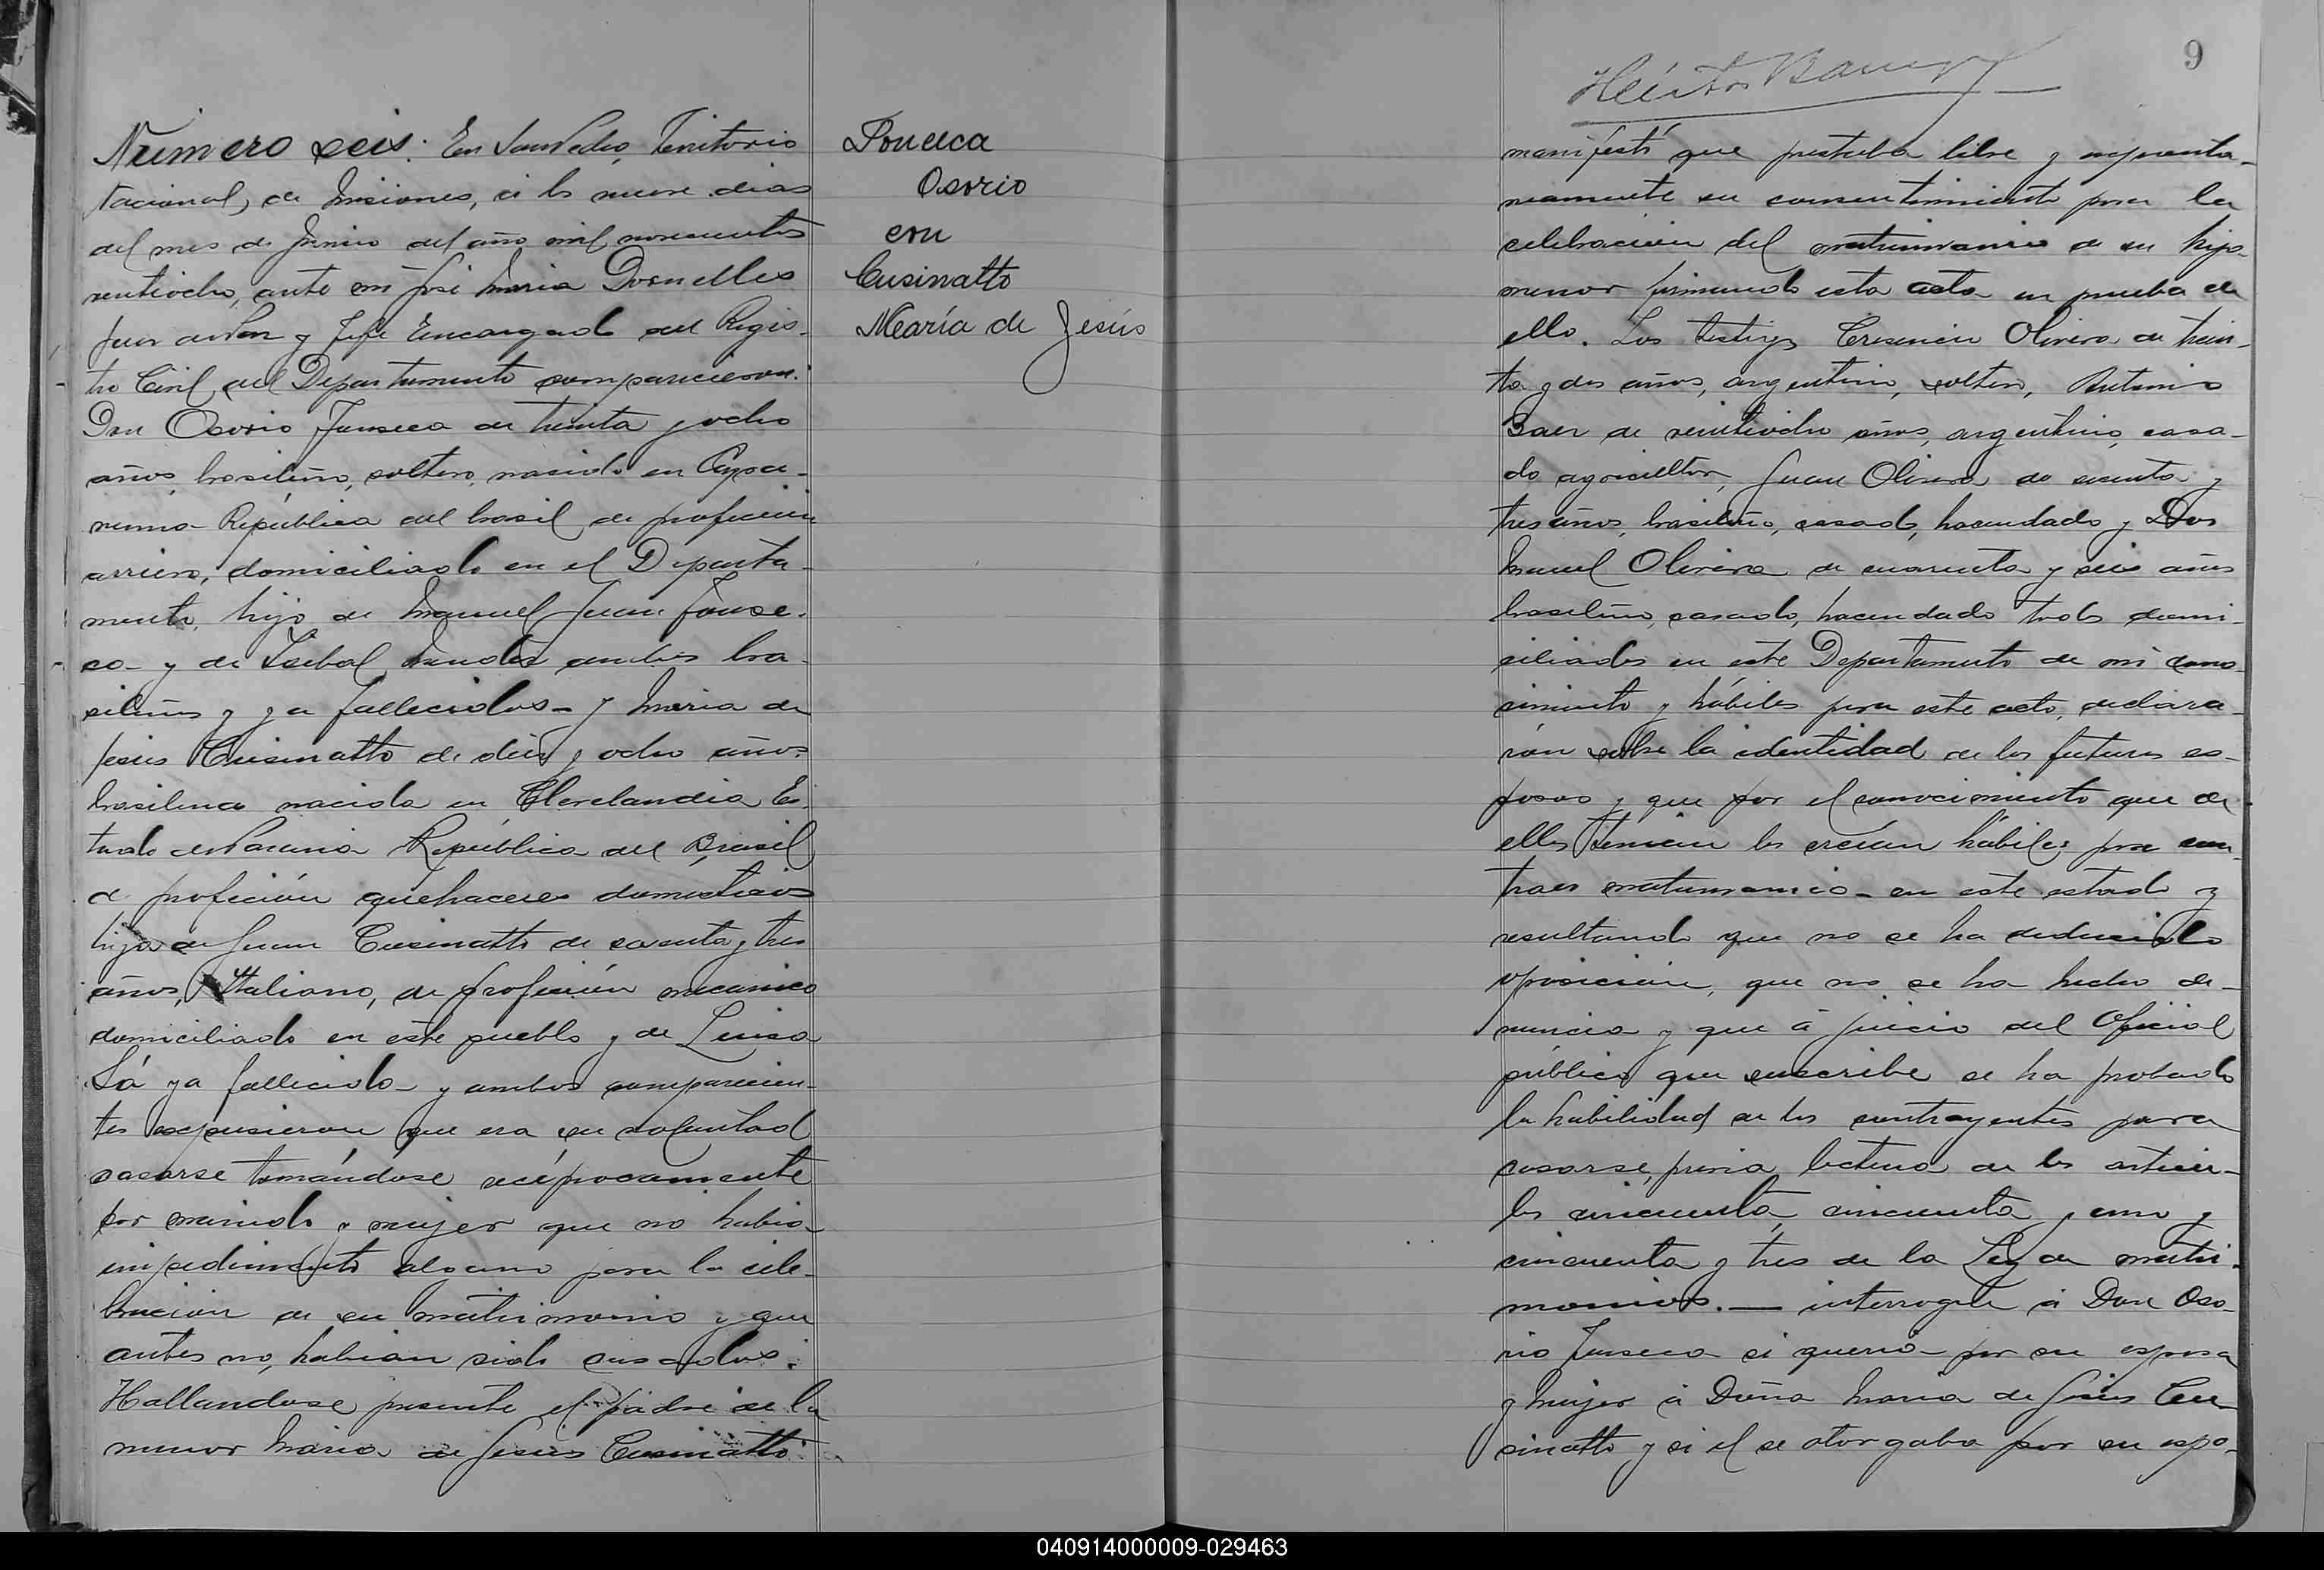 Número seis: En San Pedro, Territorio
Nacional, de Misiones, á los nueve dias
del mes de Junio del año mil novecientos
veintiocho, ante mi José Maria Dornelles
Juez de Paz y Jefe Encargado del Regis-
tro Civil del Departamento comparecieron:
Don Osorio Fonseca de treinta y ocho
años, brasileño, soltero, nacido en
República del brasil, de profición
arriero, domiciliado en el Departa-
mento, hijo de Manuel Juan Fonse-
ca y de Isabal ambos bra-
sileños y ya fallecidos - y Maria de
Jesús Cusinatto de diez y ocho años
brasilena nacida en Clevelandia Es-
tado de Parana República del Brasil
de profición quehaceres domesticos
hija de Juan Cusinatto de y tres
años, Italiano, de profición mecanico
domiciliado en este pueblo y de Luisa
Sá ya fallecida - y ambos comparecien-
tes expusieron que era su voluntad
casarse tomándose recíprocamente
por marido y mujer que no habia
impedimento alguno para la cele-
bración de su matrimonio y que
antes no, habian sido casados.
Hallandose presente el padre de la
menor Maria de Jesús Cusinatto
Fonceca
Osorio
con
Cusinatto
María de Jesús
9
Héctor
manifestó que prestaba libre y espontá-
neamente su consentimiento para la
celebración del matrimonio de su hija
menor firmando esta acta en prueba de
ello. Los testigos Cresencio Olivera de trein-
ta y dos años, argentino, soltero, Antonio
Baez de veintiocho años, argentino, casa-
do agricultor, Juan Olivera de y
tres años, brasileño, casado, hacendado y Don
Manuel Olivera de cuarenta y seis años
brasileño, casado, hacendado todos domi-
ciliados en este Departamento de mi cono-
cimiento y hábiles para este acto, declara-
rón sobre la identidad de los futuros es-
posos y que por el conocimiento que de
ellos tenian los creían hábiles para con-
traer matrimonio - en este estado y
resultando que no se ha deducido
oposición, que no se ha hecho de-
nuncia y que á juicio del Oficial
público que suscribe se ha probado
la habilidad de los contrayentes para
casarse, previa lectura de los artícu-
los cincuenta, cincuenta y uno y
cincuenta y tres de la Ley de matri-
monios. — interrogué á Don Oso-
rio Fonseca si queria por su esposa
y mujer á Doña Maria de Jesús Cu-
sinatto y si el se otorgaba por su espo-
040914000009-029463